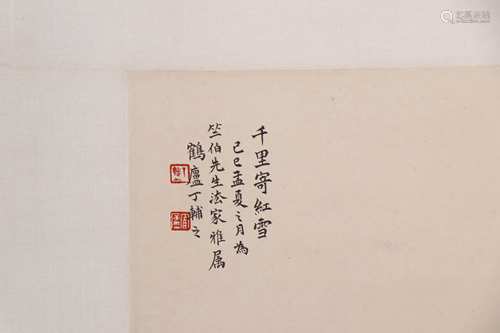 千里寄紅雪
己巳孟夏之月為
竺伯先生法家雅属
鶴廬丁輔之